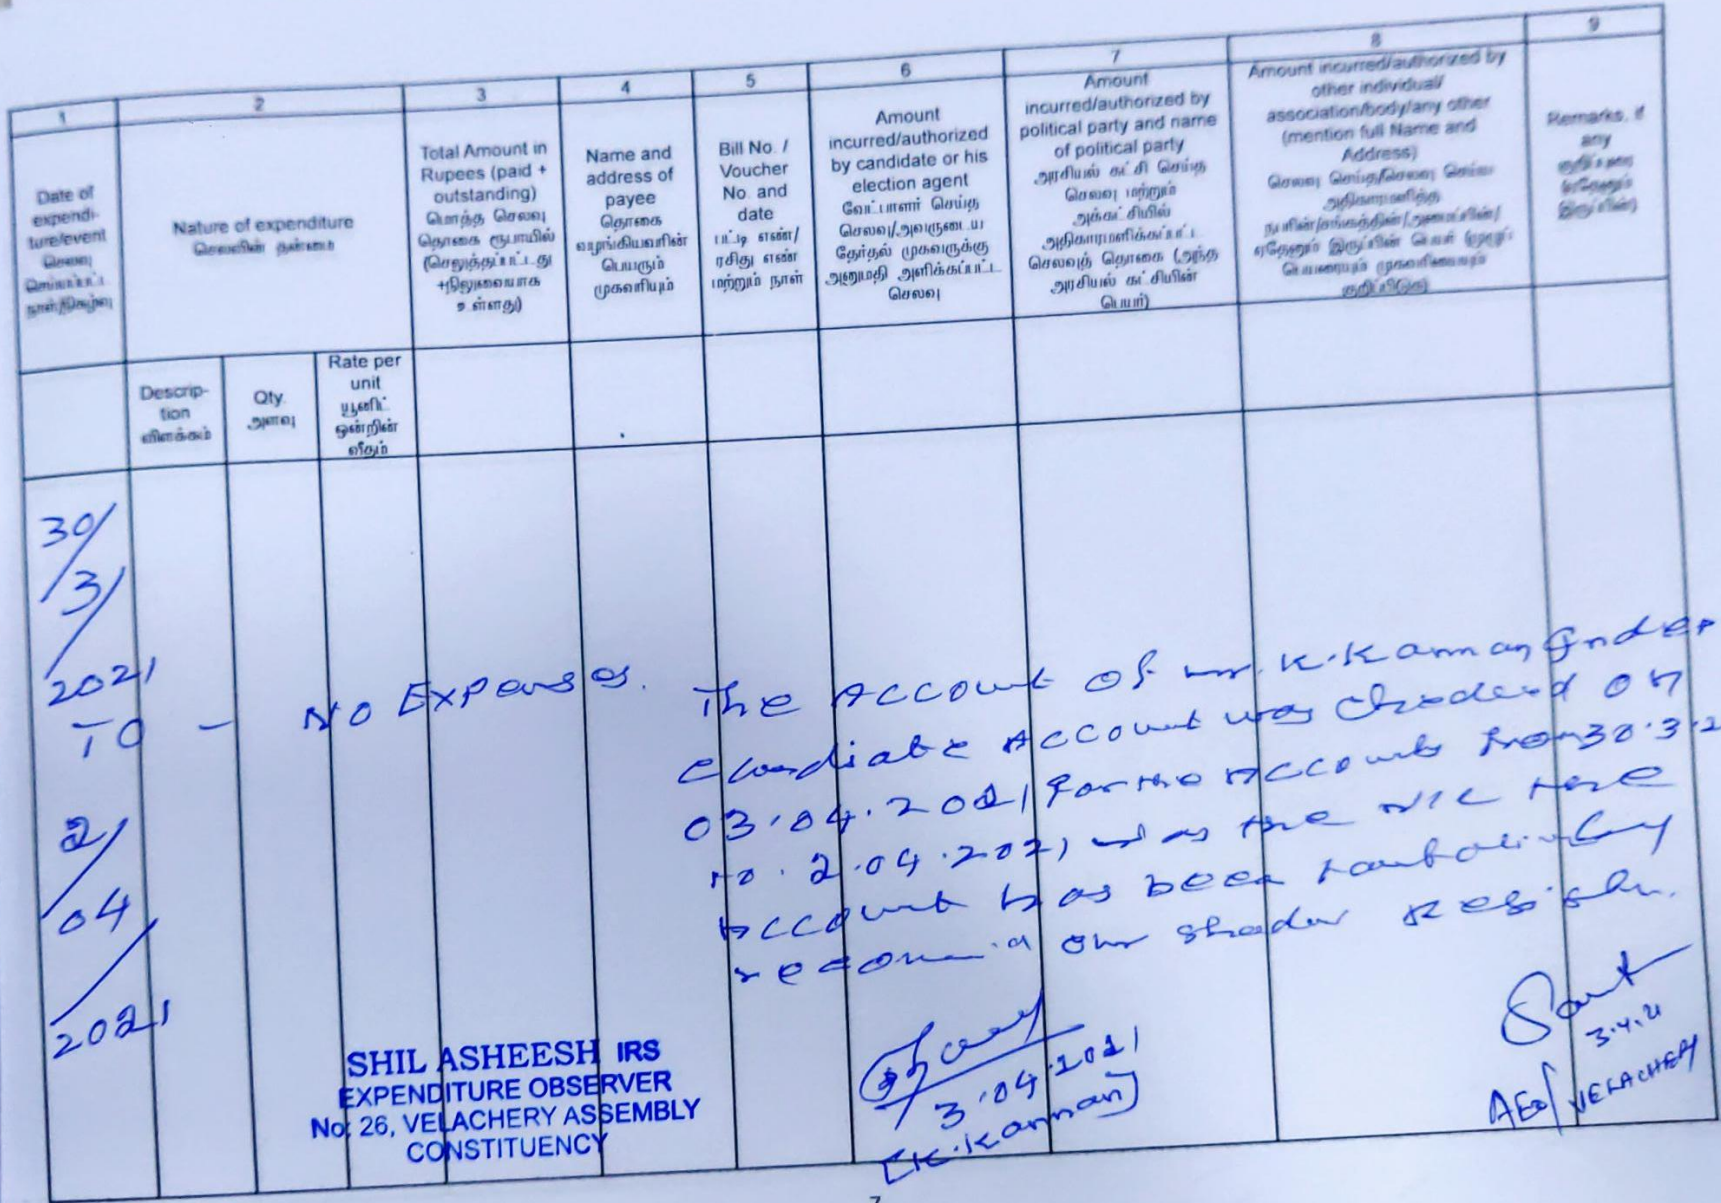 1 2 3 4 5 6 7 8 9
Date of
expendi-
ture/event
செலவு
செய்யப்பட்ட
நாள்/நிகழ்வு
Nature of expenditure
செலவின் தன்மை
Total Amount in
Rupees (paid +
outstanding)
மொத்த செலவு
தொகை ரூபாயில்
(செலுத்தப்பட்டது
+நிலுவையாக
உள்ளது)
Name and
address of
payee
தொகை
வழங்கியவரின்
பெயரும்
முகவரியும்
Bill No. /
Voucher
No. and
date
பட்டி எண்/
ரசிது எண்
மற்றும் நாள்
Amount
incurred/authorized
by candidate or his
election agent
வேட்பாளர் செய்த
செலவு/அவருடைய
தேர்தல் முகவருக்கு
அனுமதி அளிக்கப்பட்ட
செலவு
Amount
incurred/authorized by
political party and name
of political party
அரசியல் கட்சி செய்த
செலவு மற்றும்
அக்கட்சியில்
அதிகாரமளிக்கப்பட்ட
செலவுத் தொகை (அந்த
அரசியல் கட்சியின்
பெயர்)
Amount incurred/authorized by
other individual/
association/body/any other
(mention full Name and
Address)
செலவு செய்த/செலவு செய்ய
அதிகாரமளித்த
நபரின்/சங்கத்தின்/அமைப்பின்/
ஏதேனும் இருப்பின் பெயர் (முழுப்
பெயரையும் முகவரியையும்
குறிப்பிடுக)
Remarks, if
any
குறிப்புரை
(ஏதேனும்
இருப்பின்)
Descrip-
tion
விளக்கம்
Qty.
அளவு
Rate per
unit
யூனிட்
ஒன்றின்
வீதம்
30/
3/
2021
TO - No Expenses.
2/
04
/
2021
The Account of Mr. K. Kannan Indep
Candiate Account was Checked on
03.04.2021 for the Accounts from 30.3.2
to 2.04.2021, as the NIL
Account has been
our Shadow Register.
SHIL ASHEESH IRS
EXPENDITURE OBSERVER
No. 26, VELACHERY ASSEMBLY
CONSTITUENCY
3.04.2021
(K. Kannan)
3.4.21
AEO/VELACHERY
7